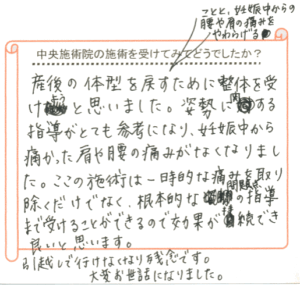 ことと、妊娠中からの
腰や肩の痛みを
やわらげる
中央施術院の施術を受けてみてどうでしたか？
産後の体型を戻すために整体を受
けと思いました。姿勢に関する
指導がとても参考になり、妊娠中から
痛かった肩や腰の痛みがなくなりまし
た。ここの施術は一時的な痛みを取り
除くだけでなく、根本的な の指導
まで受けることができるので効果が でき
良いと思います。
引越しで行けなくなり残念です。
大変お世話になりました。